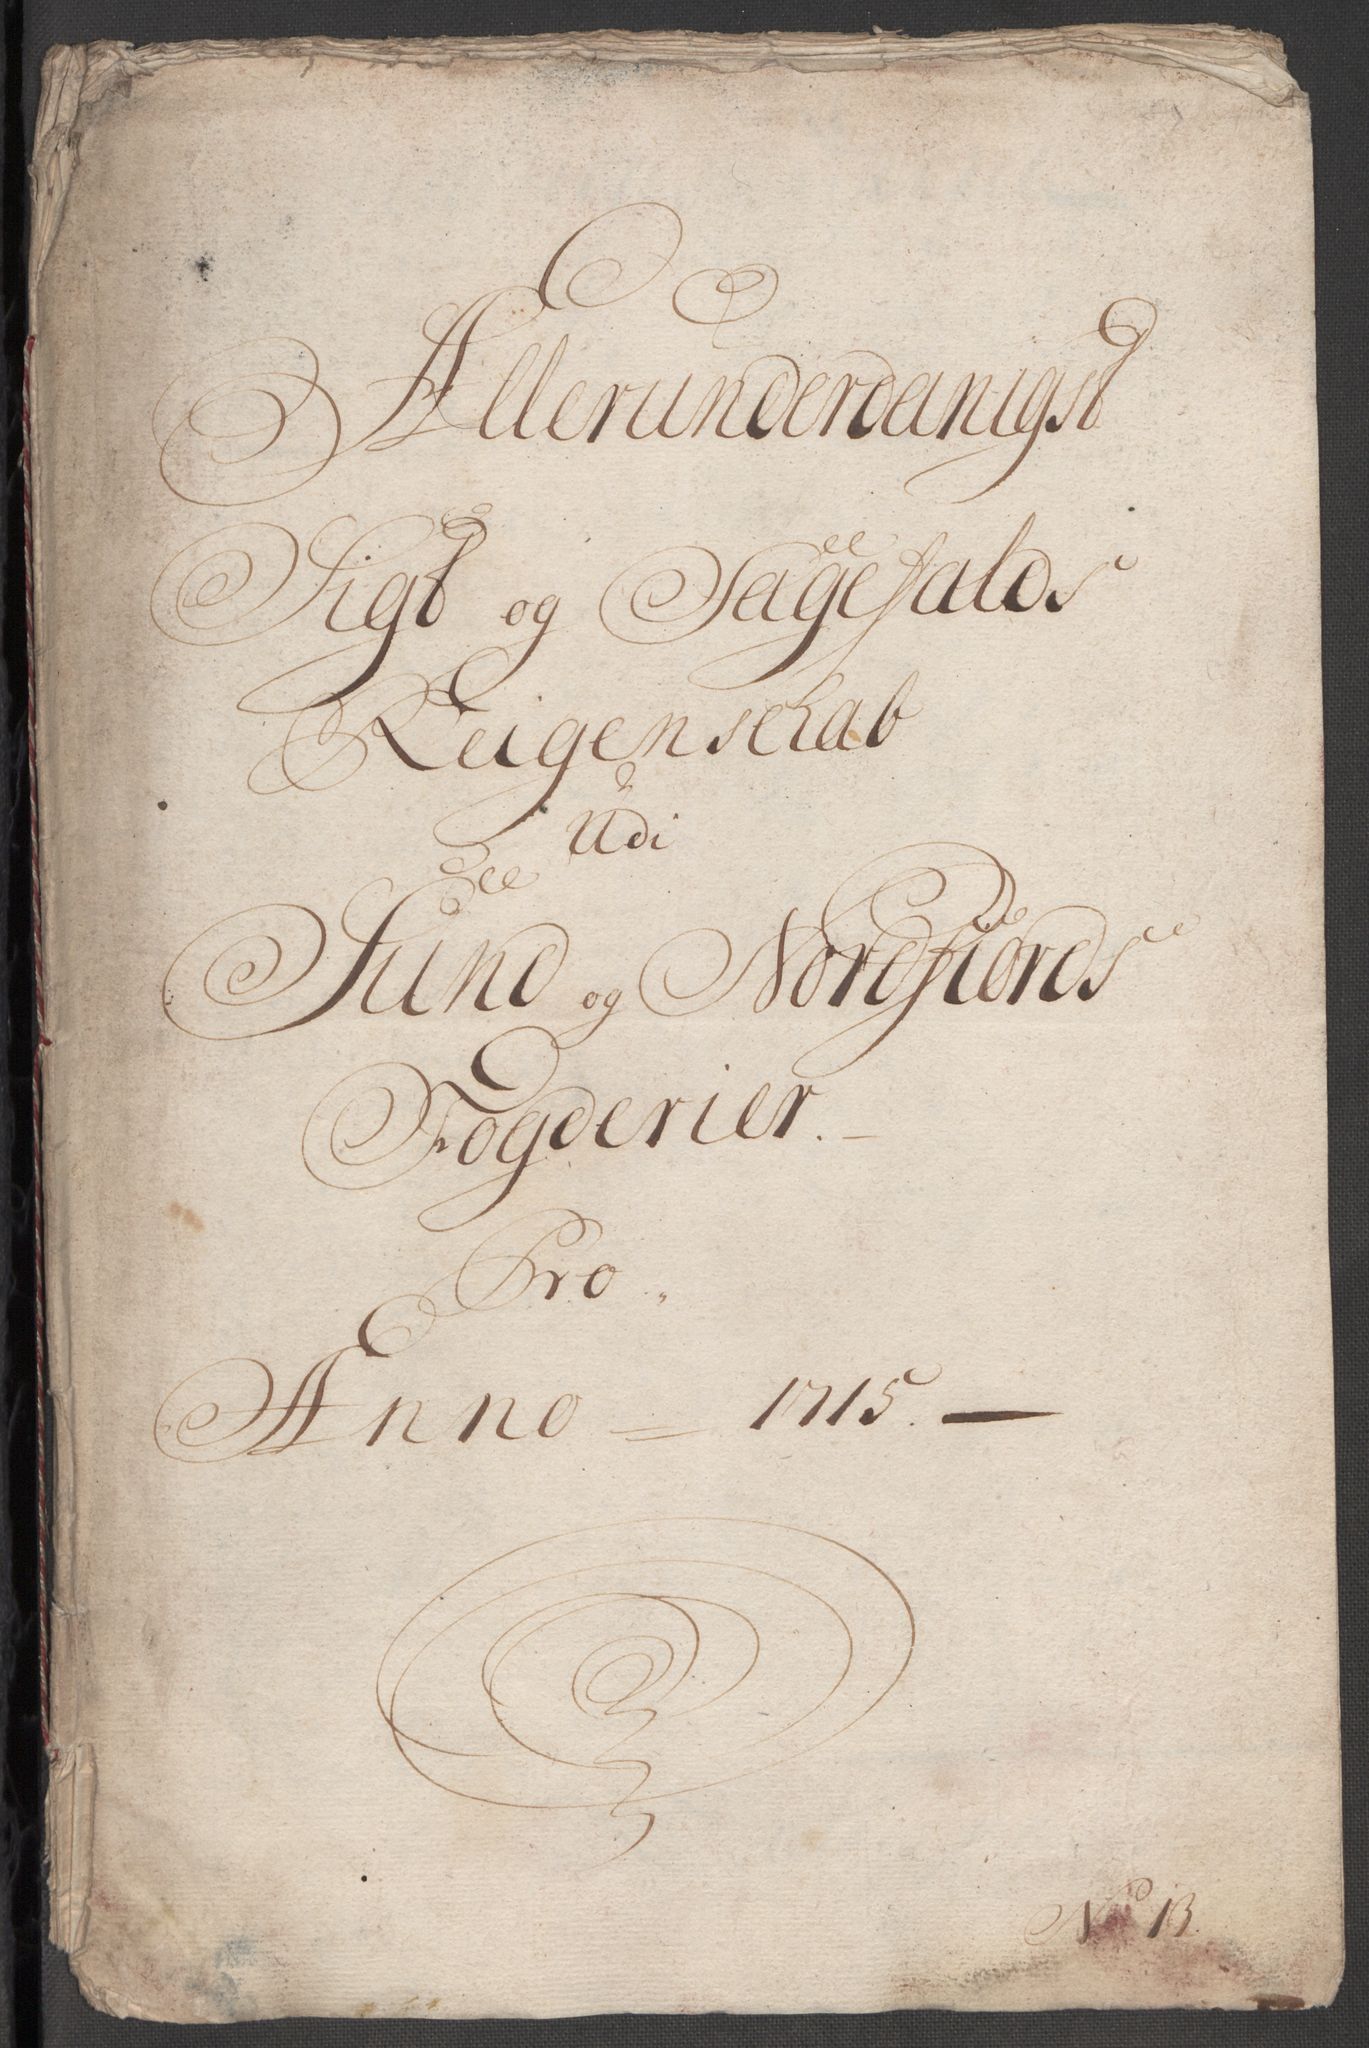 Allerunderdanigst
Sigt og Sagefalds
Reigenskab
Udi
Sund og Nordfiords
Fogderier.
Pro
Anno = 1715. —
No 13.